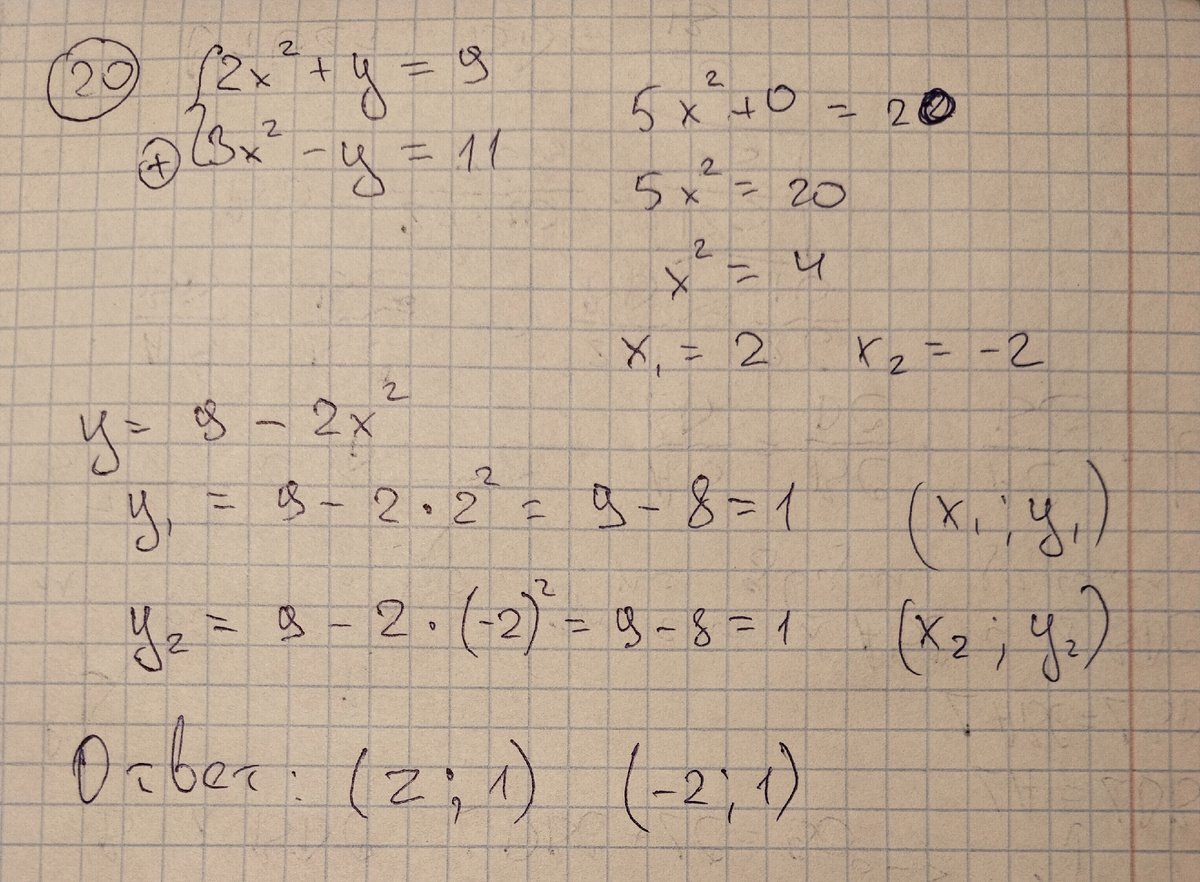 20 { 2x² + y = 9
+ 3x² - y = 11
5x² + 0 = 20
5x² = 20
x² = 4
x₁ = 2 x₂ = -2
y = 9 - 2x²
y₁ = 9 - 2 · 2² = 9 - 8 = 1 (x₁ ; y₁)
y₂ = 9 - 2 · (-2)² = 9 - 8 = 1 (x₂ ; y₂)
Ответ: (2 ; 1) (-2 ; 1)